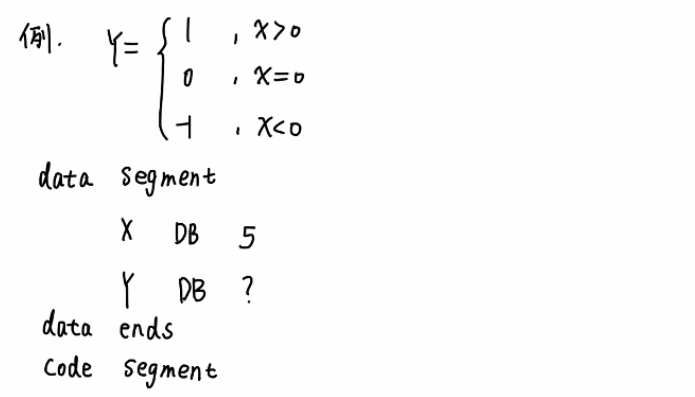 例. Y= { 1 , X>0
0 , X=0
-1 , X<0
data segment
X DB 5
Y DB ?
data ends
code segment